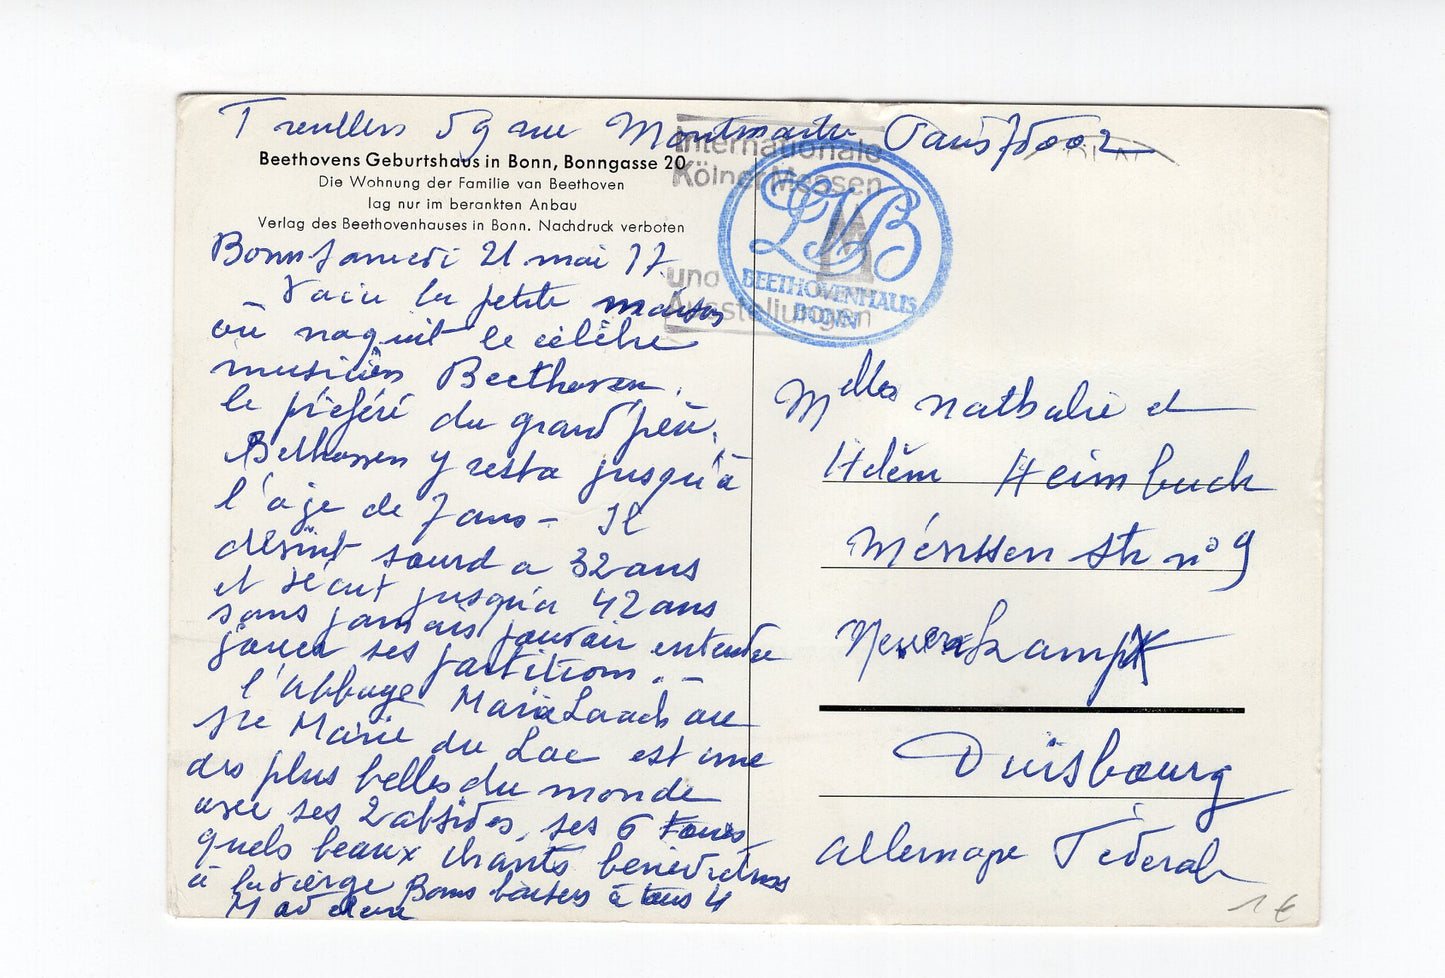 59 rue Montmartre Paris 75002
Beethovens Geburtshaus in Bonn, Bonngasse 20
Die Wohnung der Familie van Beethoven
lag nur im berankten Anbau
Verlag des Beethovenhauses in Bonn. Nachdruck verboten
Internationale
Kölner Messen
und
Ausstellungen
BEETHOVENHAUS
BONN
Bonn Samedi 21 mai 77
- Voici la petite maison
où naquit le célèbre
musicien Beethoven,
le préféré du grand père.
Bethoven y resta jusqu'à
l'âge de 7 ans - Il
devint sourd a 32 ans
et vécut jusqu'a 42 ans
sans jamais pouvoir entendre
jouer ses partitions. -
l'Abbaye Maria Laach ou
Ste Marie du Lac est une
des plus belles du monde
avec ses 2 absides, ses 6 tours
quels beaux chants bénédictins
à la vierge Bons baisers à tous 4
Madeleine
Melles Nathalie et
Hélèn Heimbuch
str n° 9
Neuenkampf
Duisbourg
Allemagne Féderal
1 €